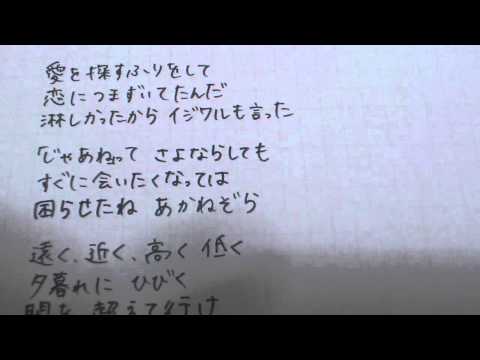 愛を探すふりをして
恋につまずいてたんだ
淋しかったから イジワルも言った
「じゃあねって さよならしても
すぐに会いたくなっては
困らせたね あかねぞら
遠く、近く、高く 低く
夕暮れに ひびく
超えて行け